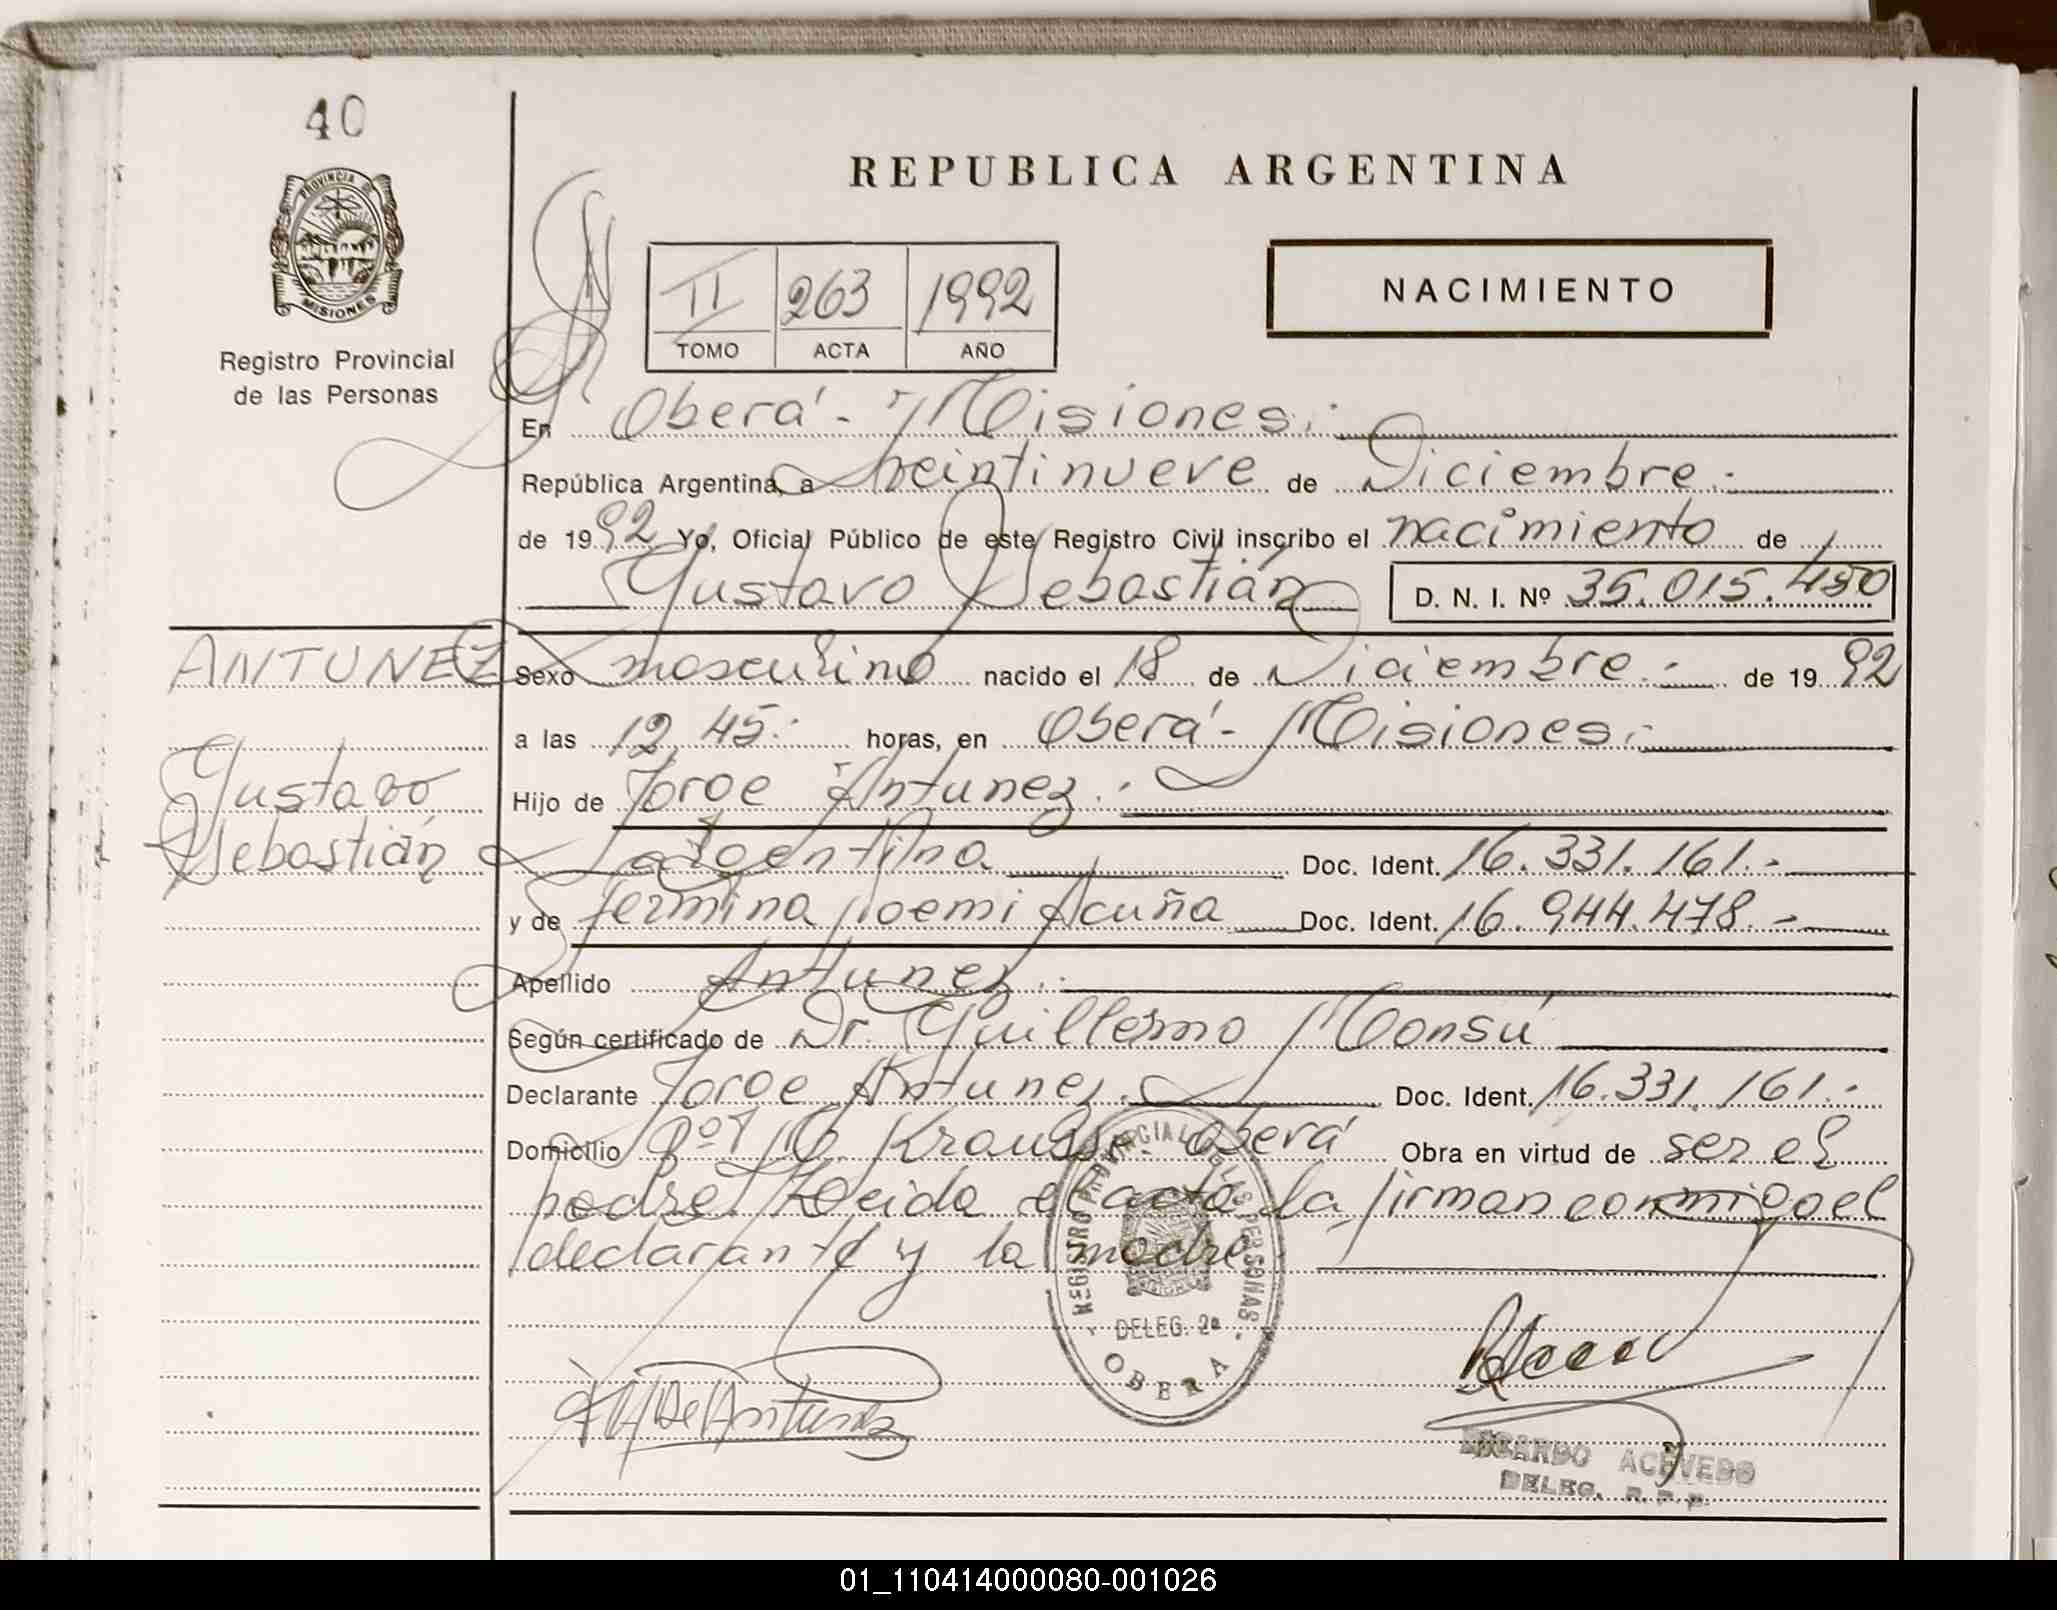 40
PROVINCIA DE
MISIONES
Registro Provincial
de las Personas
REPUBLICA ARGENTINA
II 263 1992
TOMO ACTA AÑO
NACIMIENTO
En Oberá - Misiones.
República Argentina, a Veintinueve de Diciembre.
de 1992 Yo, Oficial Público de este Registro Civil inscribo el nacimiento de
Gustavo Sebastián D. N. I. Nº 35.015.450
ANTUNEZ
Gustavo
Sebastián
Sexo masculino nacido el 18 de Diciembre.- de 1992
a las 12,45. horas, en Oberá - Misiones.
Hijo de Jorge Antunez.
argentino Doc. Ident. 16.331.161.-
y de Fermina Noemi Acuña Doc. Ident. 16.944.478.-
Apellido Antunez.
Según certificado de Dr. Guillermo Monsú
Declarante Jorge Antunez. Doc. Ident. 16.331.161.-
Domicilio Bº O. Krausse. Oberá Obra en virtud de ser el
padre. Leida el acta la firman conmigo el
declarante y la madre.
REGISTRO PROVINCIAL DE LAS PERSONAS
DELEG. 2ª
OBERA
de Antunez
RICARDO ACEVEDO
DELEG. R.P.P.
01_110414000080-001026